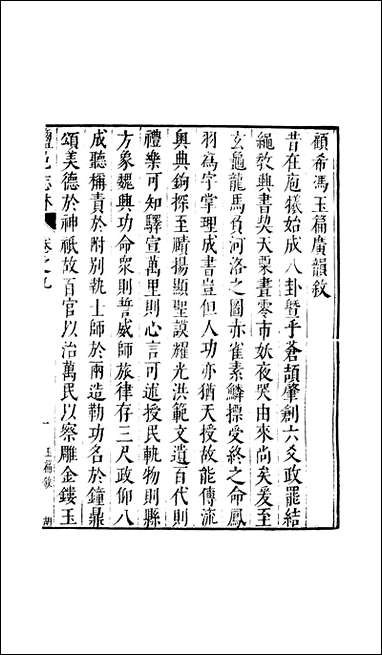 顧希馮玉篇廣韻敘
昔在庖犧始成八卦暨乎蒼頡肇創六爻政罷結
繩敎興書契天粟晝零市妖夜哭由來尚矣爰至
玄龜龍馬負河洛之圖赤雀素鱗摽受終之命鳳
羽為字掌理成書豈但人功亦猶天授故能傳流
奧典鉤探至賾揚顯聖謨耀光洪範文遺百代則
禮樂可知驛宣萬里則心言可述授民軌物則縣
方象魏興功命衆則誓威師旅律存三尺政仰八
成聽稱責於附別執士師於兩造勒功名於鐘鼎
頌美德於神祇故百官以治萬民以察雕金鏤玉
鹽邑志林 卷之九 一 玉篇敘 胡